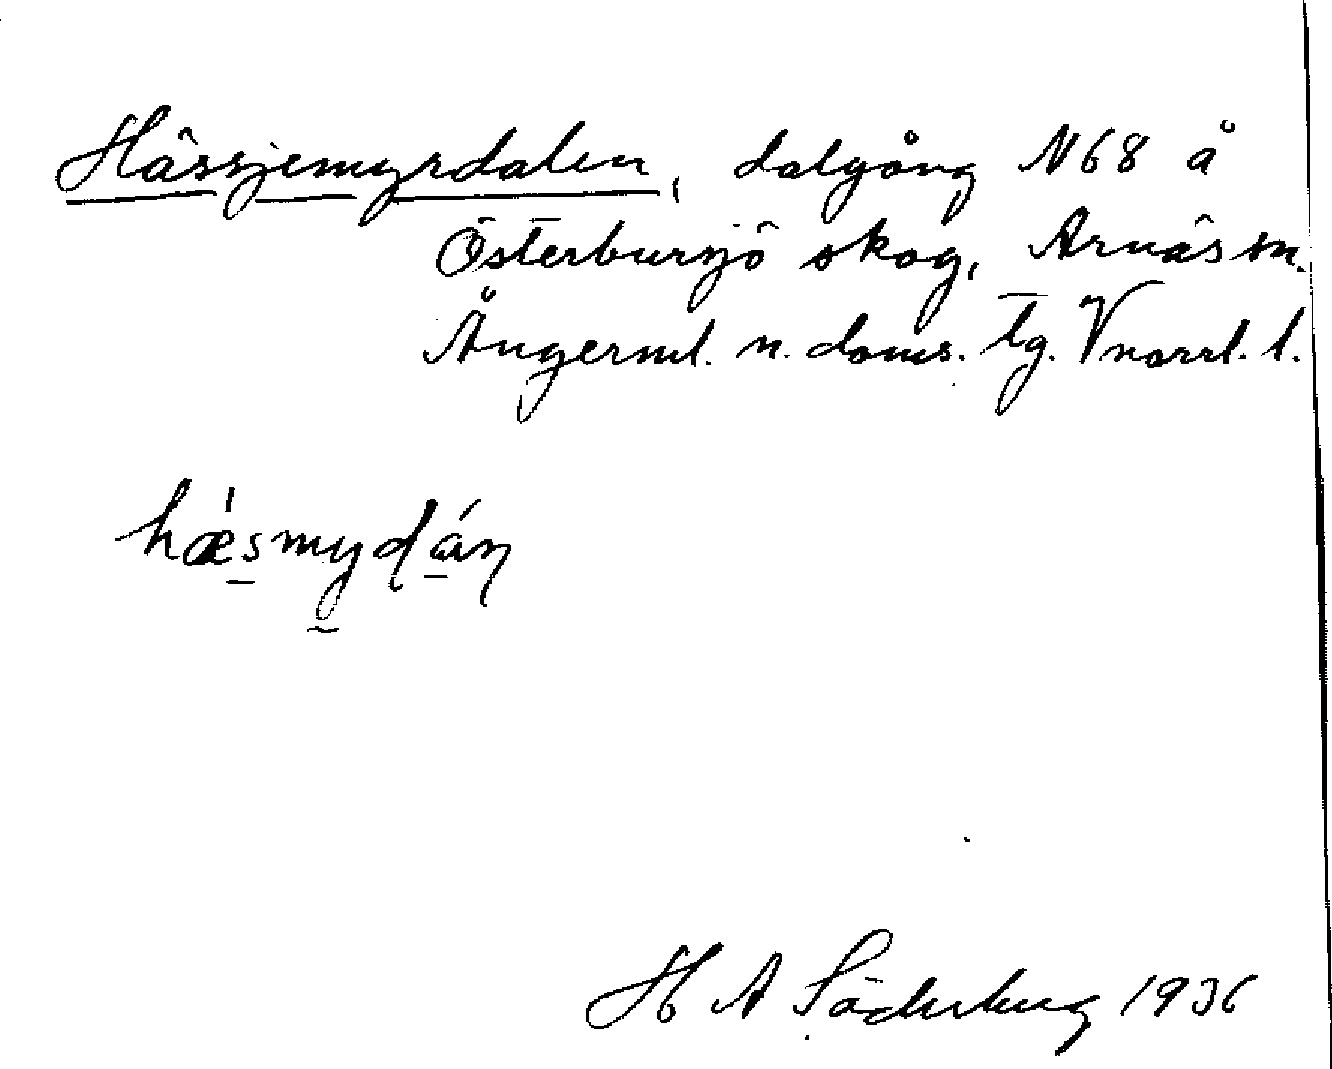 Hässjemyrdalen, dalgång N68 å
Österbursjö skog, Arnäs sn.
Ångerml. n. doms. tg. Vnorrl. l.
hæ̀smydán
H A Söderberg 1936